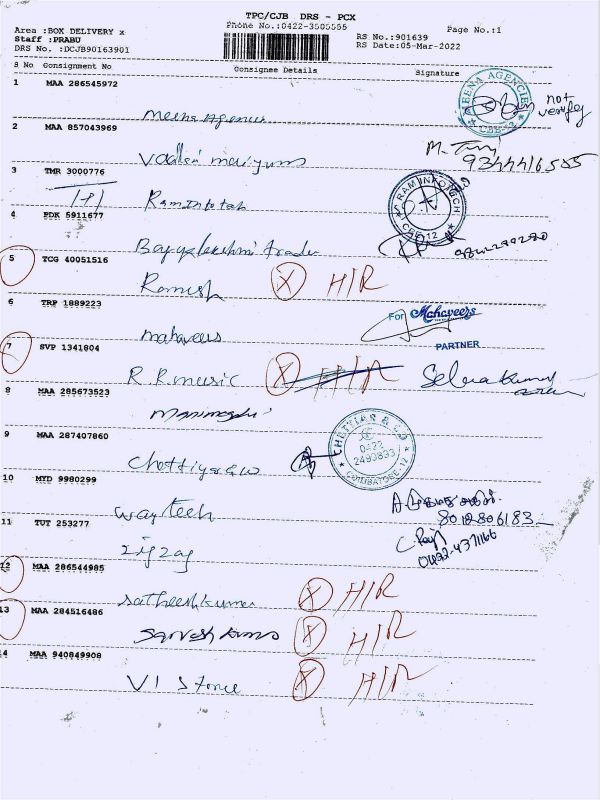 TPC/CJB DRS - PCX
Phone No.:0422-3505555
Area :BOX DELIVERY x
Staff :PRABU
DRS No. :DCJB90163901
RS No.:901639
RS Date:05-Mar-2022
Page No.:1
S No Consignment No Consignee Details Signature
1 MAA 286545972
Meena Agencies
MEENA AGENCIES
CBE-12
not verify
2 MAA 857043969
M.
9344416555
3 TMR 3000776
RAM INFOTECH
CBE-12
4 PDK 5911677
5 TCG 40051516
Ramesh X H/R
6 TRP 1889223
mahaveers
For Mahaveers
PARTNER
7 SVP 1341804
R.R. music X H/R Selvakumar
8 MAA 285673523
9 MAA 287407860
CHETTIAR & CO
0422
2493833
COIMBATORE-12
10 MYD 9980299
waytech
8012806183
11 TUT 253277
zigzag
0422-4371166
12 MAA 286544985
Satheeshkumar X H/R
13 MAA 284516486
X H/R
14 MAA 940849908
VI Store X H/R